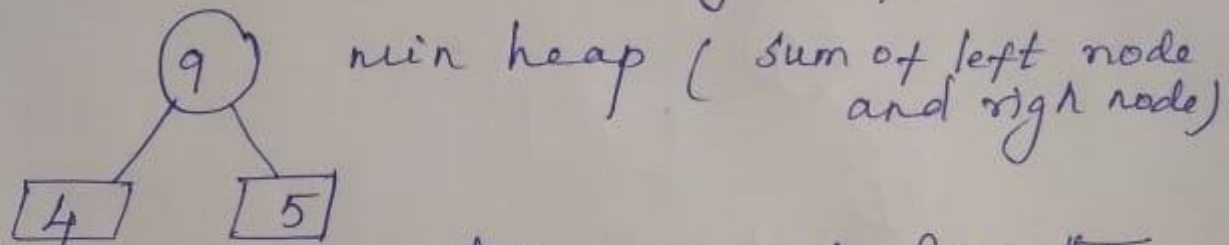 9 min heap ( sum of left node
and righ node)
4 5